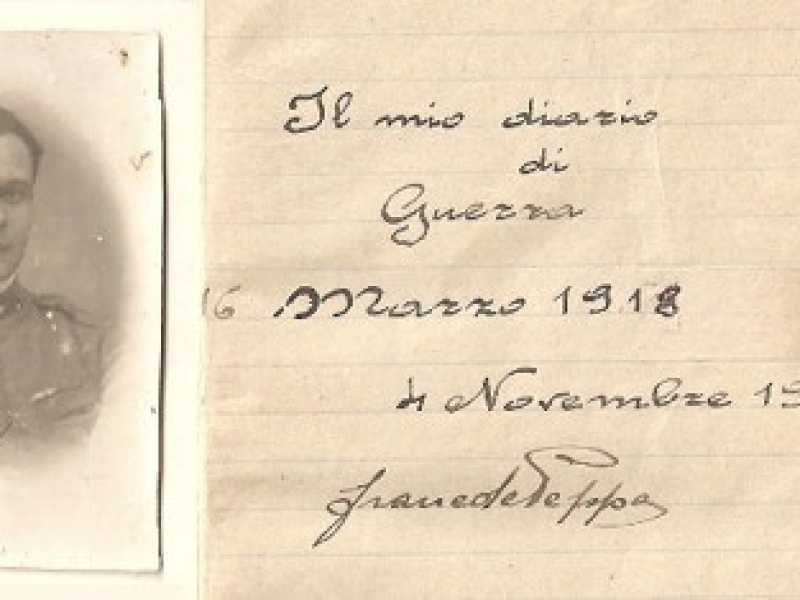 Il mio diario
di
Guerra
16 Marzo 1918
4 Novembre 19